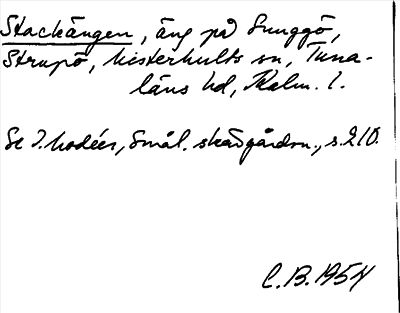 Stackängen, äng på Sunggö,
Strupö, Misterhults sn, Tuna-
läns hd, Kalm. l.
Se I. Modéer, Smål. skärgårdsn., s. 210.
C.B. 1954